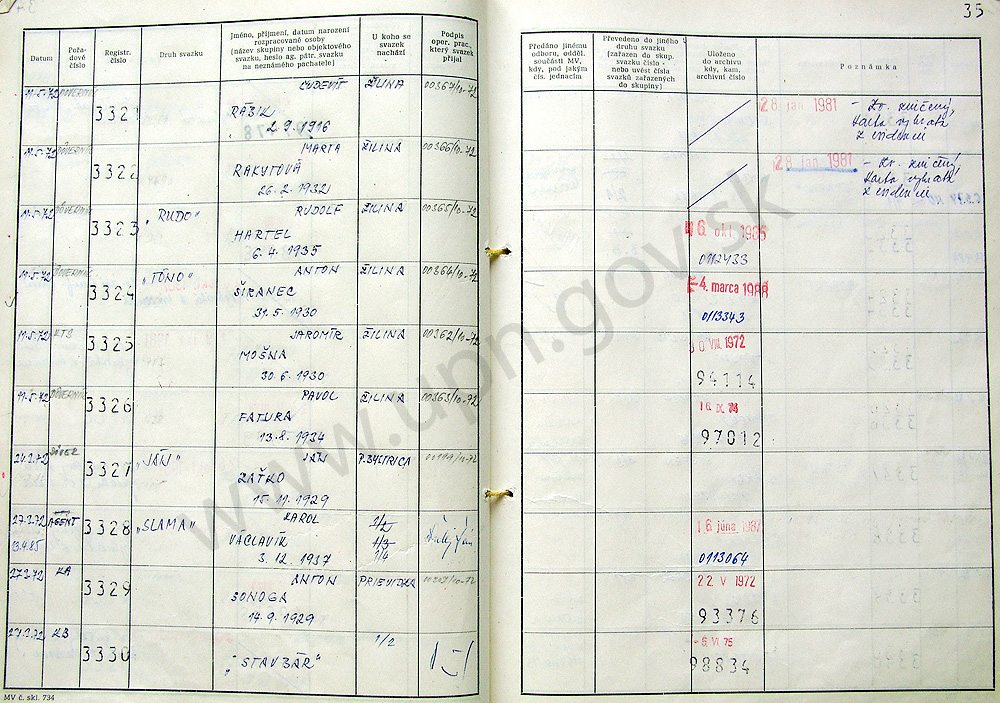 35
Datum
Pořa-
dové
číslo
Registr.
číslo
Druh svazku
Jméno, příjmení, datum narození
rozpracované osoby
(název skupiny nebo objektového
svazku, heslo ag. pátr. svazku
na neznámého pachatele)
U koho se
svazek
nachází
Podpis
oper. prac.,
který svazek
přijal
Předáno jinému
odboru, odděl.
součásti MV,
kdy, pod jakým
čís. jednacím
Převedeno do jiného
druhu svazku
(zařazen do skup.
svazku číslo -
nebo uvést čísla
svazků zařazených
do skupiny)
Uloženo
do archivu
kdy, kam,
archivní číslo
Poznámka
11.5.72 DÔVERNÍK 3321 ĽUDEVÍT ŽILINA 00367/10-72
RÁBIK
2.9.1916
28. jan. 1981
11.5.72 DÔVERNÍK 3322 MARTA ŽILINA 00366/10-72
RAKYTOVÁ
26.2.1932
28. jan. 1981
11.5.72 DÔVERNÍK 3323 "RUDO" RUDOLF ŽILINA 00365/10-72
HARTEL
6.4.1935
0112433
11.5.72 DÔVERNÍK 3324 "TÓNO" ANTON ŽILINA 00364/10-72
ŠIRANEC
31.5.1930
-4. marca 1988
0113343
11.5.72 KTS 3325 JAROMÍR ŽILINA 00362/10-72
MOŠNA
30.6.1930
VIII. 1972
94114
11.5.72 DÔVERNÍK 3326 PAVOL ŽILINA 00363/10-72
FATURA
13.8.1934
16 IX. 74
97012
3327 "JÁN" JÁN P. BYSTRICA
ZAŤKO
15.11.1929
27.2.72 AGENT 3328 "SLAMA" KAROL 1/2
13.4.85 VÁCLAVÍK 1/3
3.12.1937 1/4
16. júna 1987
0113064
27.2.72 KA 3329 ANTON PRIEVIDZA
SONOGA
14.9.1929
22 V 1972
93376
27.2.72 KB 3330 1/2
"STAVBÁR"
-5. VI. 75
98834
MV č. skl. 734
www.upn.gov.sk